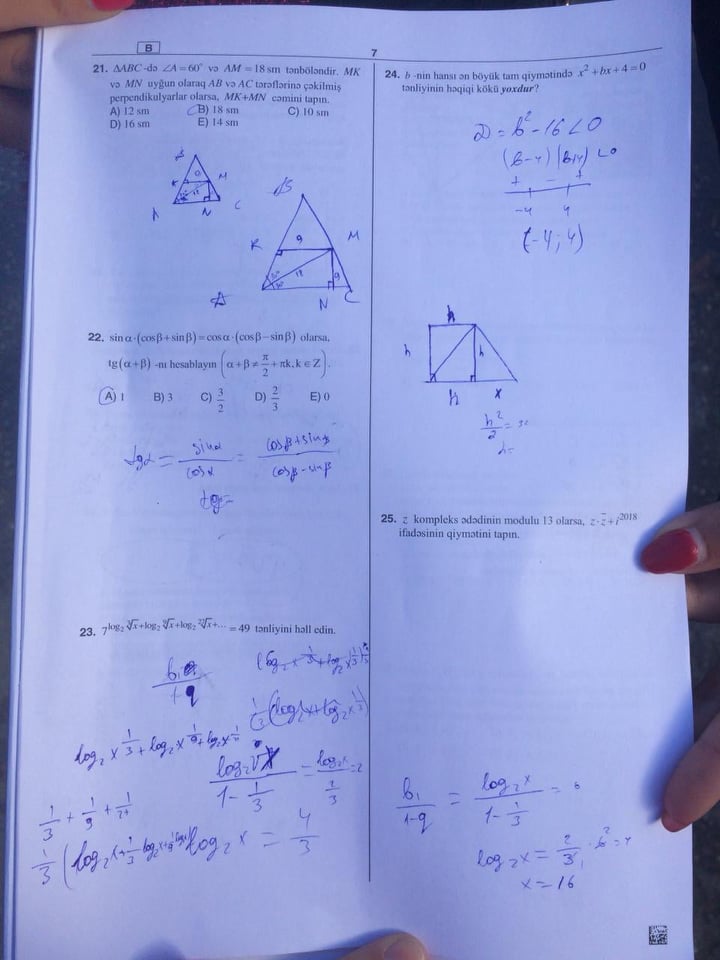 B
7
21. ΔABC-də ∠A=60° və AM=18 sm tənböləndir. MK
və MN uyğun olaraq AB və AC tərəflərinə çəkilmiş
perpendikulyarlar olarsa, MK+MN cəmini tapın.
A) 12 sm B) 18 sm C) 10 sm
D) 16 sm E) 14 sm
K M
A N C
B
K 9 M
18 9
A N C
22. sinα·(cosβ+sinβ)=cosα·(cosβ−sinβ) olarsa,
tg(α+β) -nı hesablayın (α+β≠π/2+πk, k∈Z).
A) 1 B) 3 C) 3/2 D) 2/3 E) 0
tgα = sinα/cosα = cosβ+sinβ/cosβ-sinβ
23. 7^(log₂ ∛x+log₂ ⁹√x+log₂ ²⁷√x+...) = 49 tənliyini həll edin.
1-q
1/3 + 1/9 + 1/27
log₂x = 4/3
24. b -nin hansı ən böyük tam qiymətində x²+bx+4=0
tənliyinin həqiqi kökü yoxdur?
D = b²-16<0
(b-4)(b+4)<0
+ - +
-4 4
(-4;4)
h
h h
h x
h²/2 = 32
h=
25. z kompleks ədədinin modulu 13 olarsa, z·z̄+i²⁰¹⁸
ifadəsinin qiymətini tapın.
b₁/1-q = log₂x/1-1/3 =
log₂x = 2/3
x=16